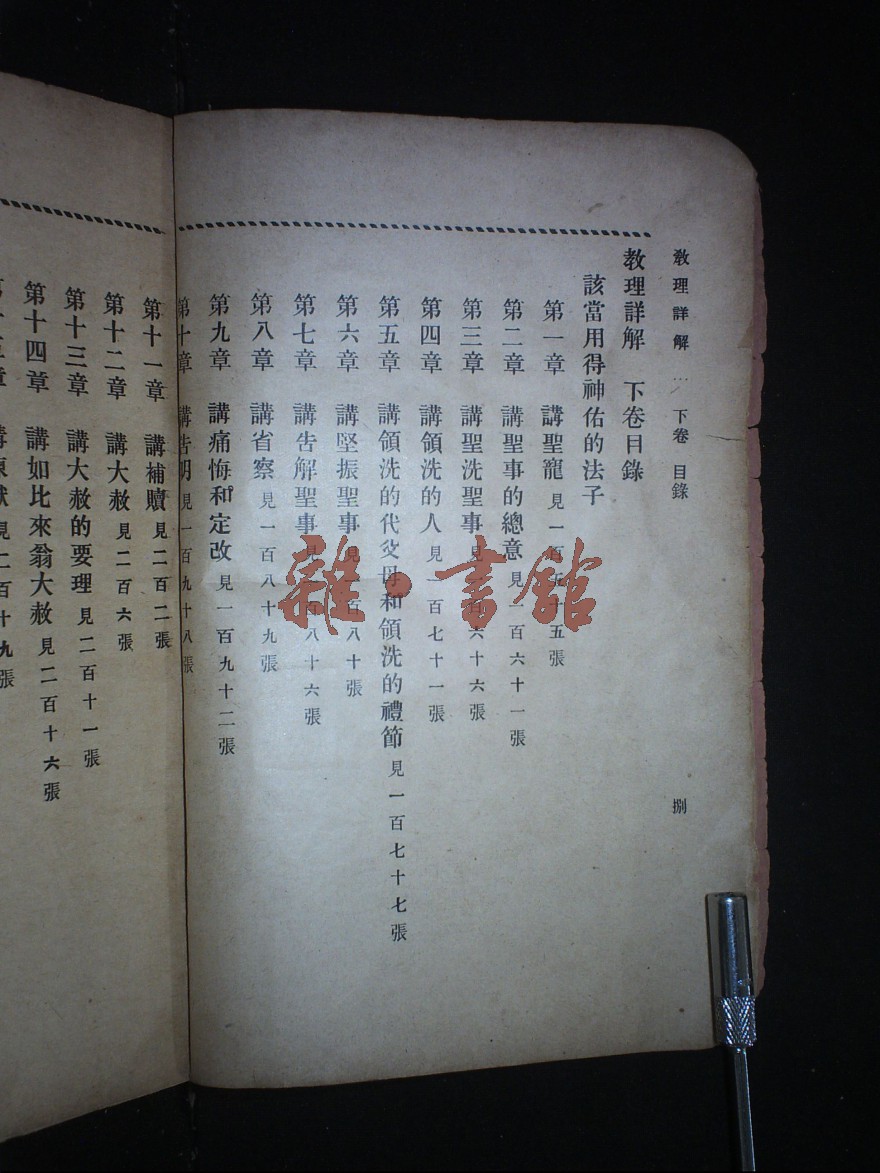 教理詳解 下卷 目錄 捌
教理詳解 下卷目錄
該當用得神佑的法子
第一章 講聖寵 見一百五十五張
第二章 講聖事的總意 見一百六十一張
第三章 講聖洗聖事 見一百六十六張
第四章 講領洗的人 見一百七十一張
第五章 講領洗的代父母和領洗的禮節 見一百七十七張
第六章 講堅振聖事 見一百八十張
第七章 講告解聖事 見一百八十六張
第八章 講省察 見一百八十九張
第九章 講痛悔和定改 見一百九十二張
第十章 講告明 見一百九十八張
第十一章 講補贖 見二百二張
第十二章 講大赦 見二百六張
第十三章 講大赦的要理 見二百十一張
第十四章 講如比來翁大赦 見二百十六張
見二百十九張
雜·書館